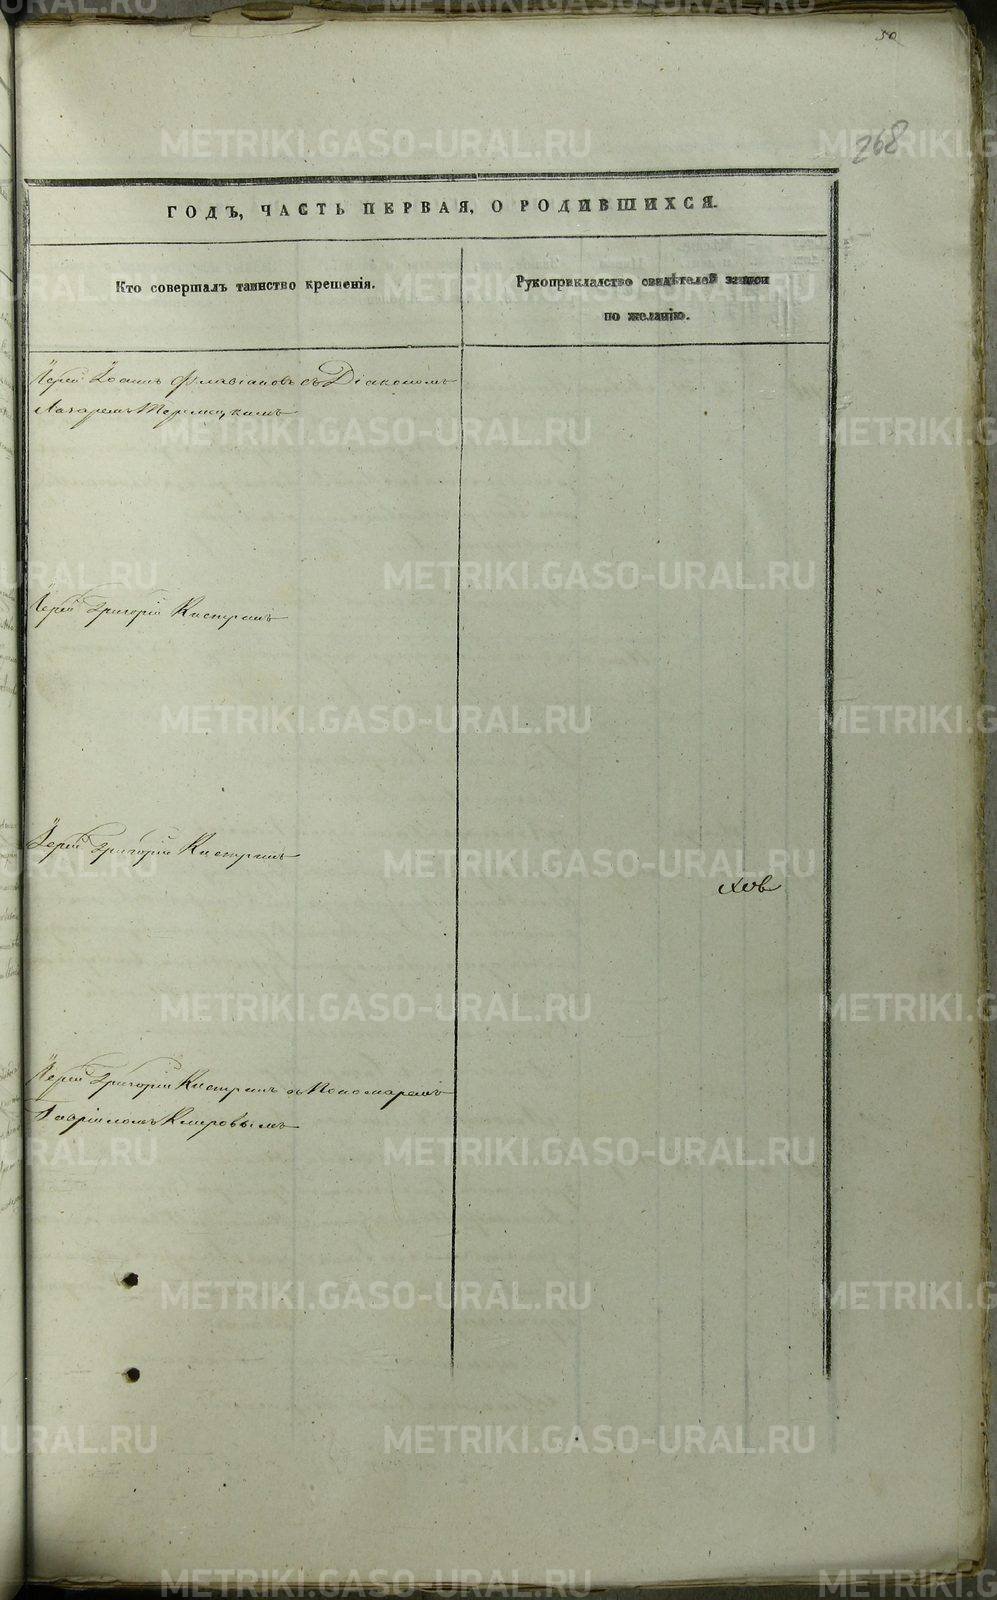 50
268
ГОДЪ, ЧАСТЬ ПЕРВАЯ, О РОДИВШИХСЯ.
Кто совершалъ таинство крещенія.
Рукоприкладство свидѣтелей записи
по желанію.
Іерей Іоаннъ Флавіановъ съ Діакономъ
Лазаремъ
Іерей Григорій
Іерей Григорій
ховъ
Іерей Григорій съ Пономаремъ
Гавріиломъ
METRIKI.GASO-URAL.RU